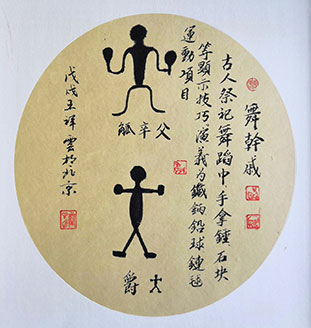 舞幹戚
古人祭祀舞蹈中手拿錘石块
等顯示技巧演義为鐵鉼鉛球鏈毬
運動項目
觚辛父
爵
戊戌王祥雲於北京